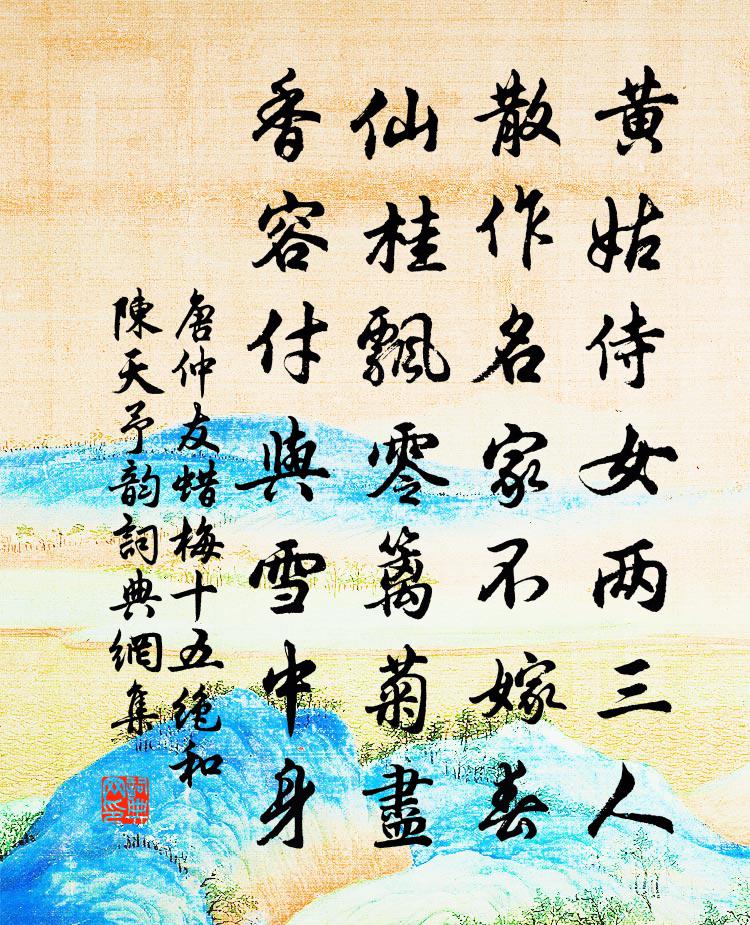 黄姑侍女两三人
散作名家不嫁春
仙桂飘零篱菊盡
香容付與雪中身
唐仲友蜡梅十五绝和
陳天予韵詞典網集